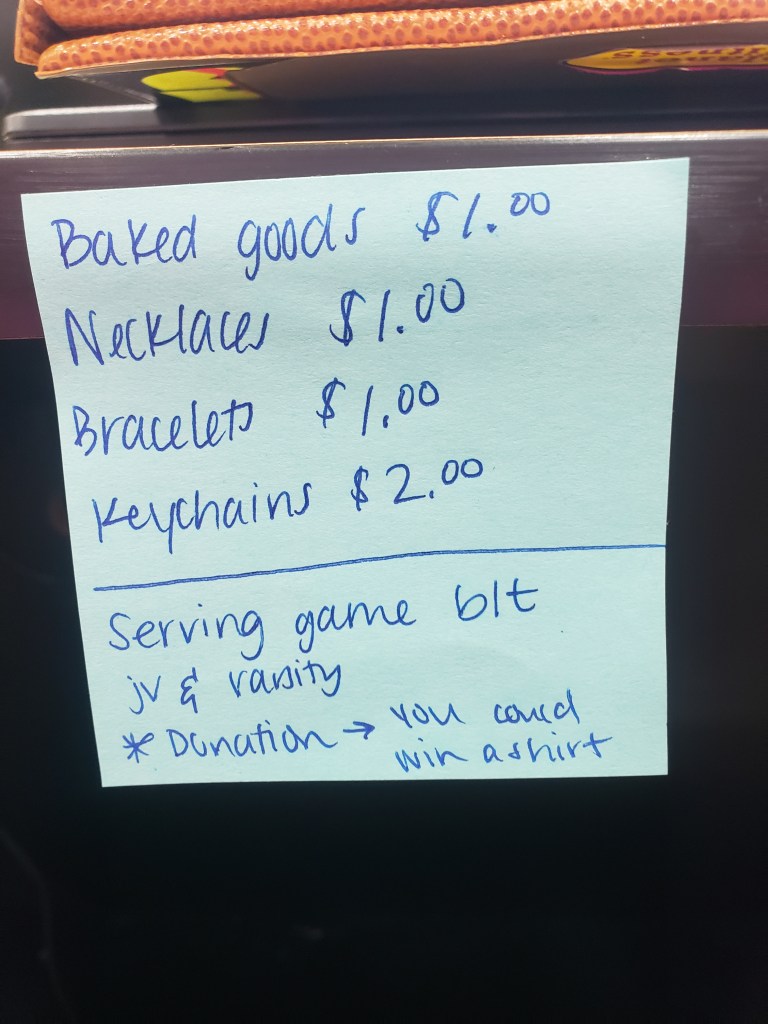 Baked goods $1.00
Necklaces $1.00
Bracelets $1.00
Keychains $2.00
Serving game b/t
jv & varsity
* Donation → you could
win a shirt